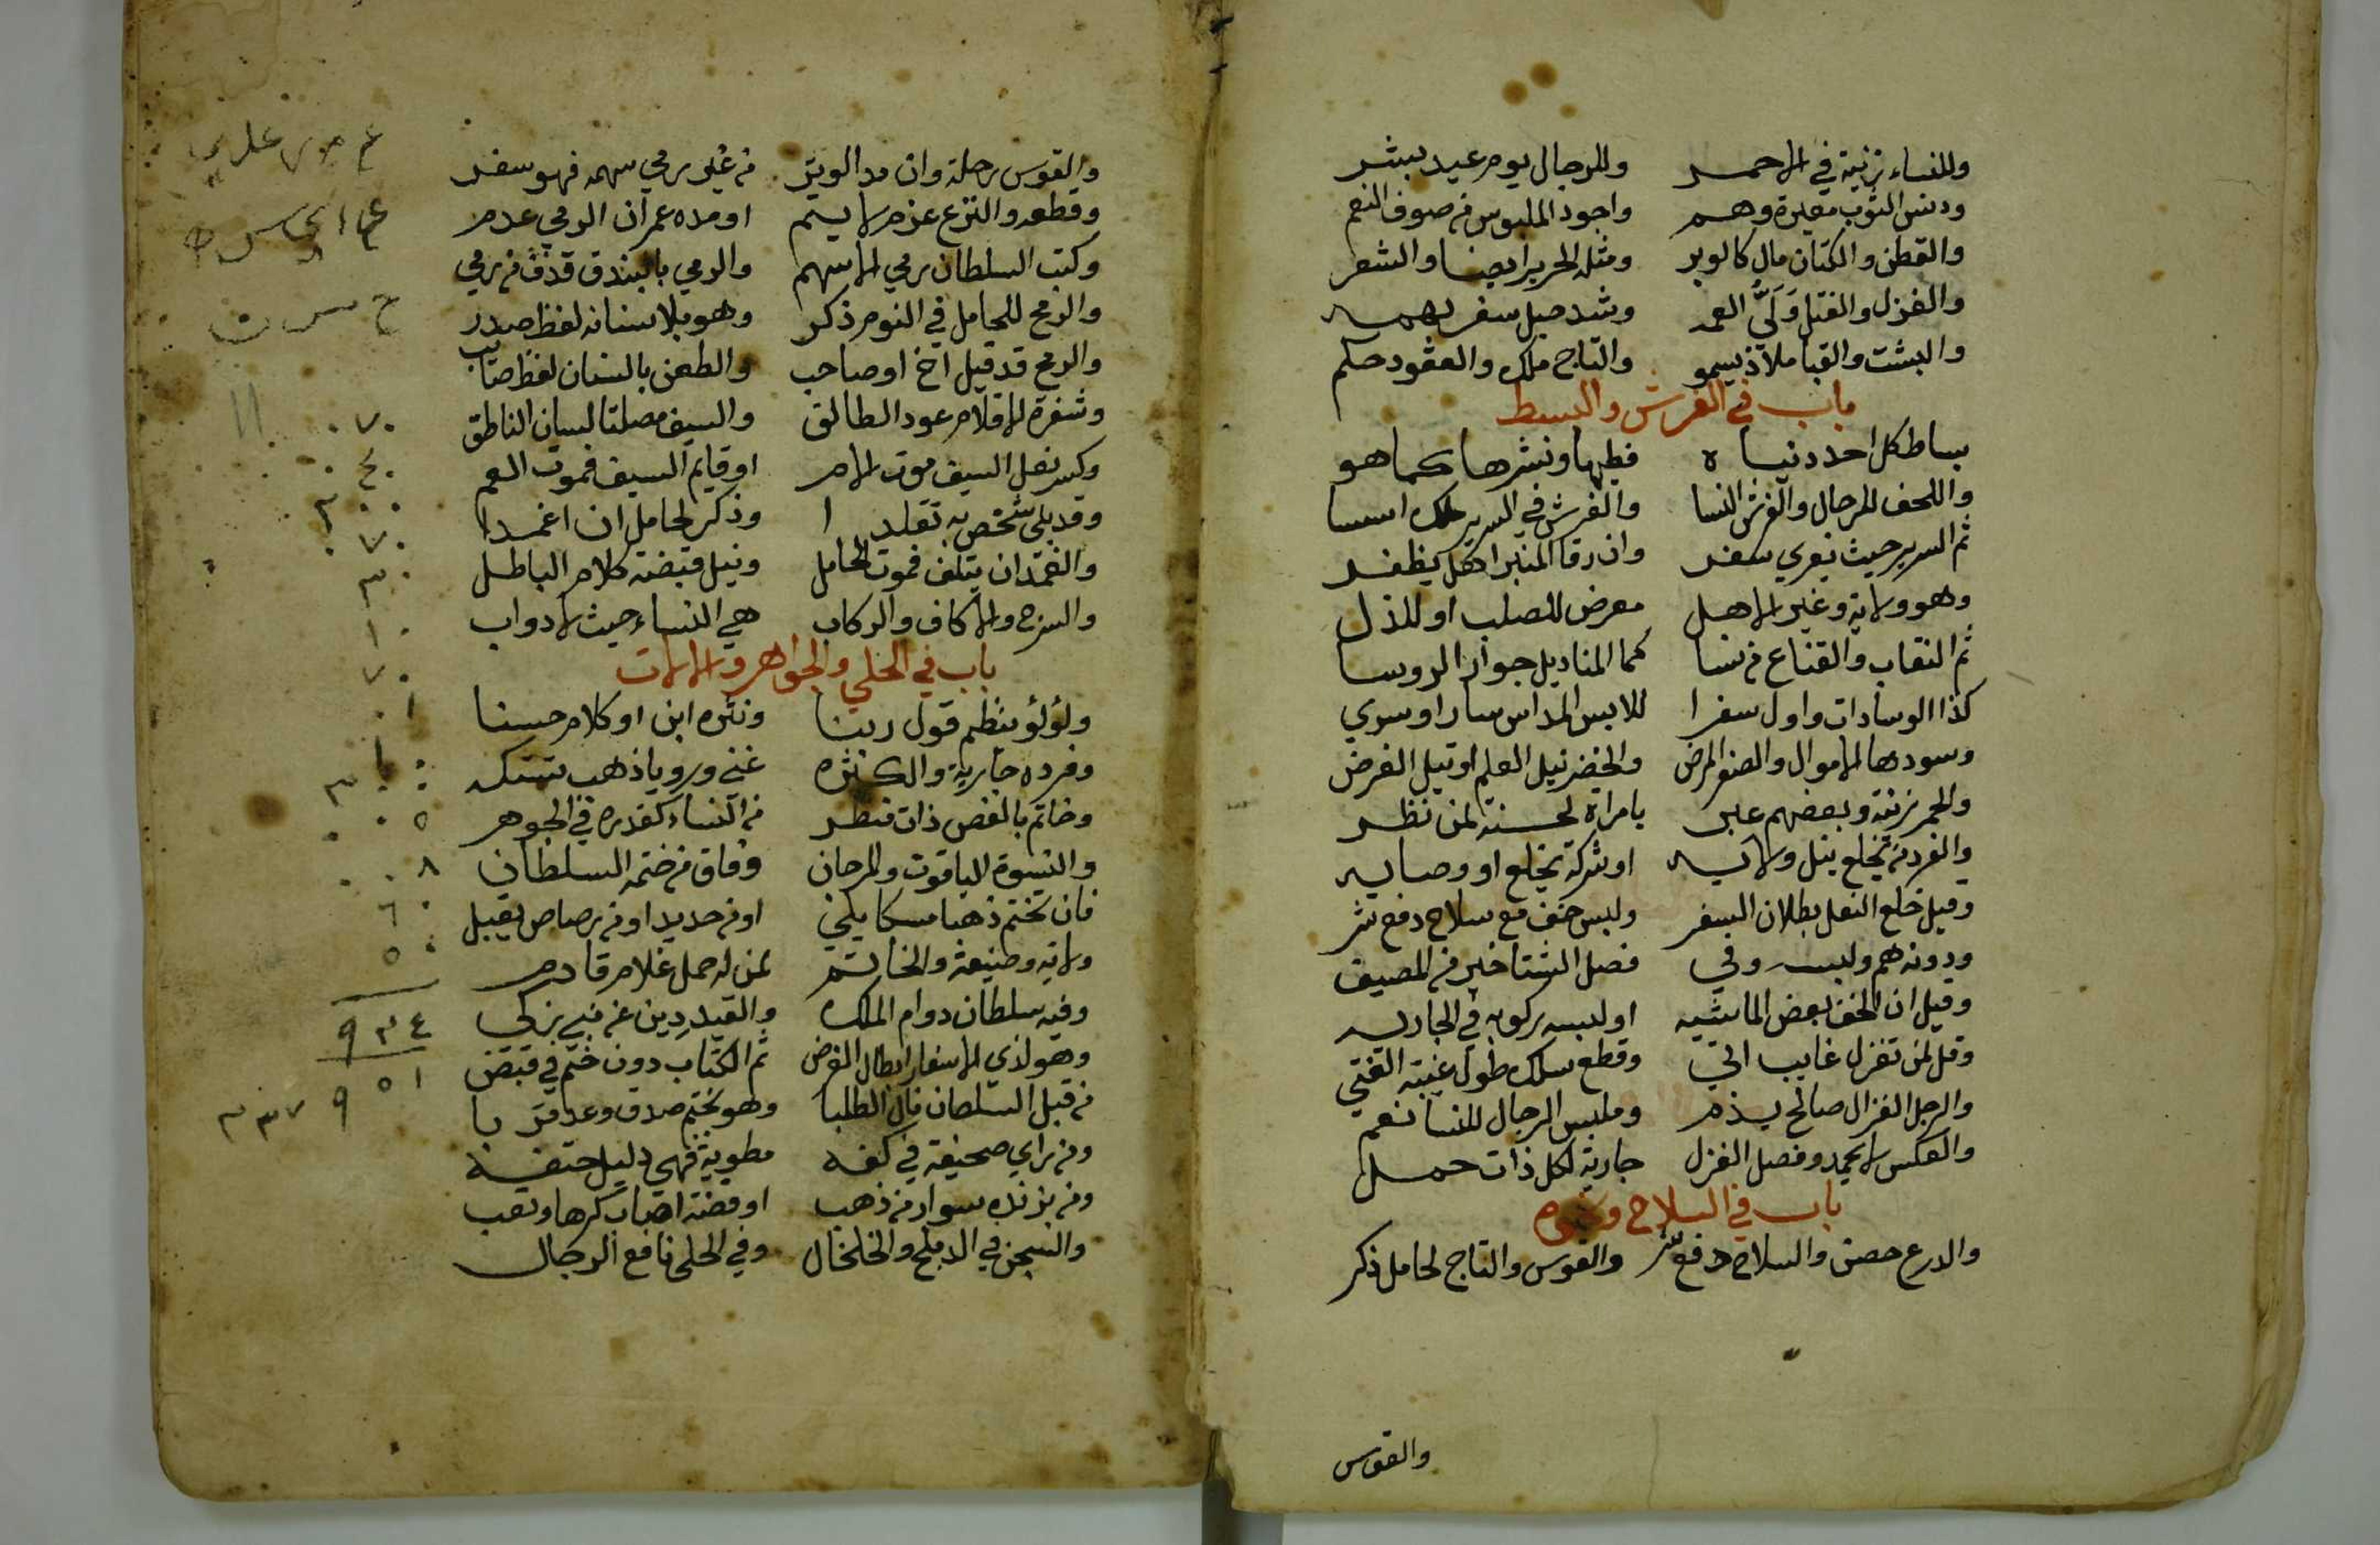 وللنساء زينة في الاحمر وللرجال يوم عيد يبشر
ودنس الثوب معيرة وهم واجود الملبوس من صوف النعم
والقطن والكتان مال كالوبر ومثله الحرير ايضا والشعر
والغزل والفتل وَلَيُّ العمه وشد حبل سفر بهمه
والبشت والقبا ملاذ يسمو والتاج ملك والعقود حكم
باب في الفرش والبسط
بساط كل احد دنياه فطيها ونشرها كما هو
واللحف الرجال والفرش النسا والفرش في السرير ملك اسسا
ثم السرير حيث يعري سفر وان رقا المنبر اهل يظفر
وهو ولاية وغير الاهل معرض للصلب او للذل
ثم النقاب والقناع من نسا كما المناديل جوار الروسا
كذا الوسادات واول سفرا للابس المداس سار او سري
وسودها الاموال والصفر المرض والخضر نيل العلم او نيل الغرض
والحمر زينة وبعضهم عبر بامراة لحسنة لمن نظر
والفرد من يخلع ينل ولايه او شركة يخلع او وصايه
وقيل خلع النعل بطلان السفر ولبس خف مع سلاح دفع شر
ودونه هم ولبسه وفي فصل الشتا خير من المصيف
وقيل ان الخف بعض الماشيه او لبسه ركوبه في الجاريه
وقل لمن تغزل غايب اتي وقطع سلك طول غيبة الفتي
والرجل الغزال صالح يذم وملبس الرجال للنسا نعم
والعكس لا يحمد وفصل الغزل جارية لكل ذات حمل
باب في السلاح ونحوه
والدرع حصن والسلاح دفع شر والقوس والتاج لحامل ذكر
والقوس
والقوس رحلة وان مد الوتر من غير رمي سهمه فهو سفر
وقطعه والنزع عزم لا يتم او مده عمر ان الرمي عدم
وكتب السلطان رمي الاسهم والرمي بالبندق قذف من رمي
والرمح للحامل في النوم ذكر وهو بلا سنانه لفظ صدر
والرمح قد قيل اخ او صاحب والطعن بالسنان لفظ صائب
وشفرة الاقلام عود الطالق والسيف مصلتا لسان الناطق
وكسر نصل السيف موت الام او قايم السيف فموت العم
وقد يلي شخص به تقلدا وذكر لحامل ان اغمدا
والغمد ان يتلف فموت الحامل ونيل قبضته كلام الباطل
والسرج والاكاف والركاب هي النساء حيث لا دواب
باب في الحلي والجواهر والالات
ولؤلؤ ينظم قول ربنا ونثره ابن او كلام حسنا
وفرده جارية والكثره غني وروياذهب تستكه
وخاتم بالفص ذات فنظر من النساء كقدره في الجوهر
والنسوة الياقوت والمرجان وفاق من ختمه السلطان
فان تختم ذهبا مسكا يلي او من حديد او من رصاص يقبل
ولاية وضيعة والخاتم لمن له حمل غلام قادم
وفيه سلطان دوام الملك والقيد دين عن نبي يزكي
وهو لذي الاسفار ابطال الغرض ثم الكتاب دون ختم في قبض
من قبل السلطان نال الطلبا وهو بختم صدق وعد قربا
ومن راي صحيفة في كفه مطوية فهي دليل حتفه
ومن بزنده سوار من ذهب او فضة اصاب كرها وتعب
والسجن في الدملج والخلخال وفي الحلي نافع الرجال
٩٣٤